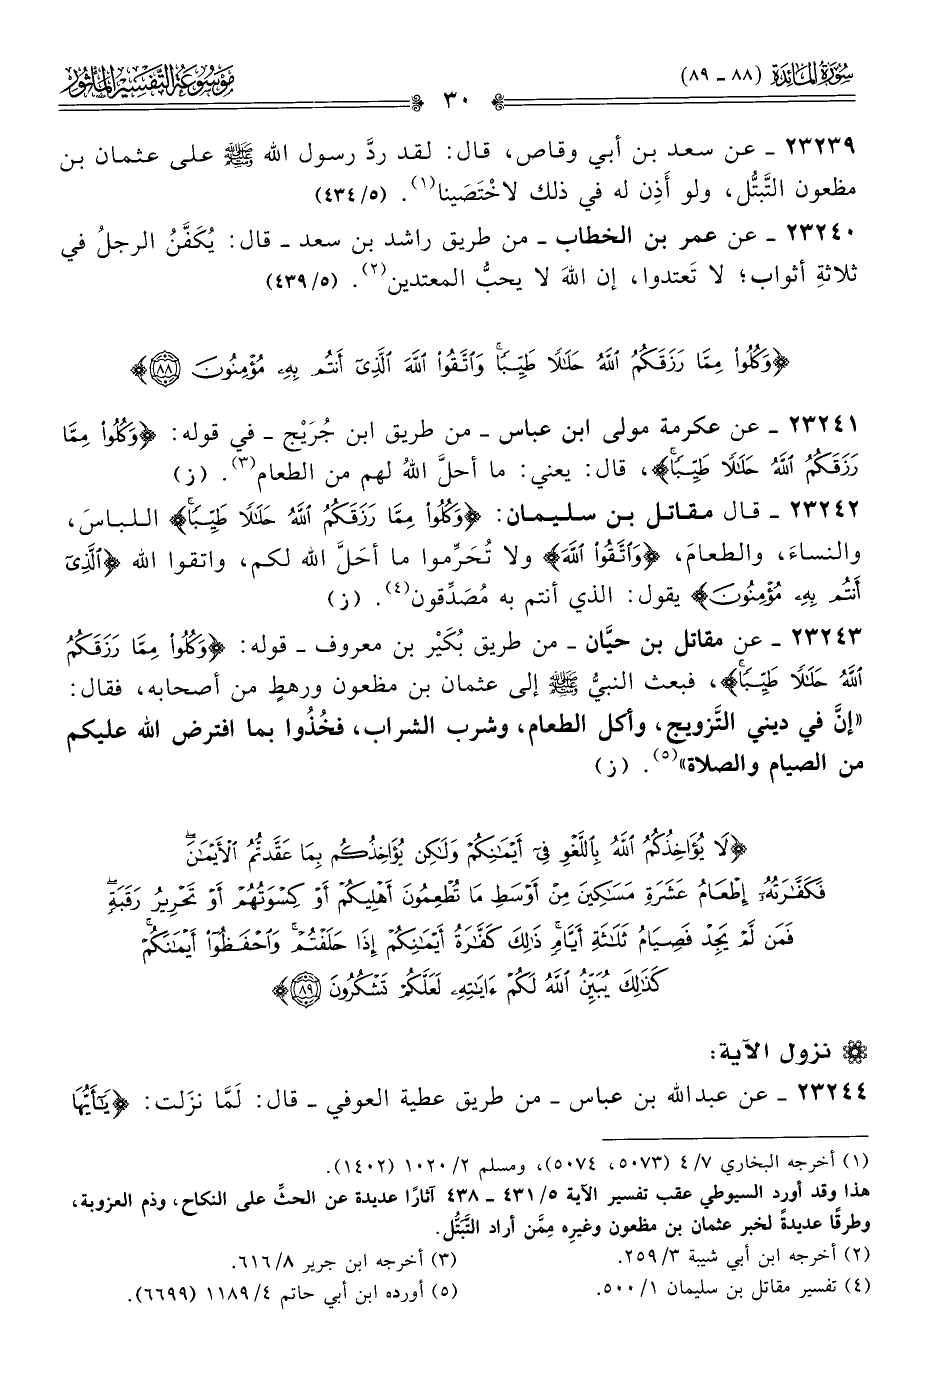 سُورَةُ المَائِدَة (٨٨ - ٨٩)
٣٠
مَوْسُوعَةُ التَّفْسِيرِ المَأْثُور
٢٣٢٣٩ - عن سعد بن أبي وقاص، قال: لقد ردَّ رسول الله ﷺ على عثمان بن
مظعون التَّبتُّل، ولو أَذِن له في ذلك لاخْتَصَينا(١). (٤٣٤/٥)
٢٣٢٤٠ - عن عمر بن الخطاب - من طريق راشد بن سعد - قال: يُكفَّنُ الرجلُ في
ثلاثةِ أثواب؛ لا تَعتدوا، إن اللهَ لا يحبُّ المعتدين(٢). (٤٣٩/٥)
﴿وَكُلُوا۟ مِمَّا رَزَقَكُمُ ٱللَّهُ حَلَٰلًا طَيِّبًۭا ۚ وَٱتَّقُوا۟ ٱللَّهَ ٱلَّذِىٓ أَنتُم بِهِۦ مُؤْمِنُونَ ٨٨﴾
٢٣٢٤١ - عن عكرمة مولى ابن عباس - من طريق ابن جُرَيْج - في قوله: ﴿وَكُلُوا۟ مِمَّا
رَزَقَكُمُ ٱللَّهُ حَلَٰلًا طَيِّبًۭا ۚ﴾، قال: يعني: ما أحلَّ اللهُ لهم من الطعام(٣). (ز)
٢٣٢٤٢ - قال مقاتل بن سليمان: ﴿وَكُلُوا۟ مِمَّا رَزَقَكُمُ ٱللَّهُ حَلَٰلًا طَيِّبًۭا ۚ﴾ اللباسَ،
والنساءَ، والطعامَ، ﴿وَٱتَّقُوا۟ ٱللَّهَ﴾ ولا تُحَرِّموا ما أحلَّ الله لكم، واتقوا الله ﴿ٱلَّذِىٓ
أَنتُم بِهِۦ مُؤْمِنُونَ﴾ يقول: الذي أنتم به مُصَدِّقون(٤). (ز)
٢٣٢٤٣ - عن مقاتل بن حيَّان - من طريق بُكَيْر بن معروف - قوله: ﴿وَكُلُوا۟ مِمَّا رَزَقَكُمُ
ٱللَّهُ حَلَٰلًا طَيِّبًۭا ۚ﴾، فبعث النبيُّ ﷺ إلى عثمان بن مظعون ورهطٍ من أصحابه، فقال:
«إنَّ في ديني التَّزويج، وأكل الطعام، وشرب الشراب، فخُذُوا بما افترض الله عليكم
من الصيام والصلاة»(٥). (ز)
﴿لَا يُؤَاخِذُكُمُ ٱللَّهُ بِٱللَّغْوِ فِىٓ أَيْمَٰنِكُمْ وَلَٰكِن يُؤَاخِذُكُم بِمَا عَقَّدتُّمُ ٱلْأَيْمَٰنَ ۖ
فَكَفَّٰرَتُهُۥٓ إِطْعَامُ عَشَرَةِ مَسَٰكِينَ مِنْ أَوْسَطِ مَا تُطْعِمُونَ أَهْلِيكُمْ أَوْ كِسْوَتُهُمْ أَوْ تَحْرِيرُ رَقَبَةٍۢ ۖ
فَمَن لَّمْ يَجِدْ فَصِيَامُ ثَلَٰثَةِ أَيَّامٍۢ ۚ ذَٰلِكَ كَفَّٰرَةُ أَيْمَٰنِكُمْ إِذَا حَلَفْتُمْ ۚ وَٱحْفَظُوٓا۟ أَيْمَٰنَكُمْ ۚ
كَذَٰلِكَ يُبَيِّنُ ٱللَّهُ لَكُمْ ءَايَٰتِهِۦ لَعَلَّكُمْ تَشْكُرُونَ ٨٩﴾
نزول الآية:
٢٣٢٤٤ - عن عبدالله بن عباس - من طريق عطية العوفي - قال: لَمَّا نزَلت: ﴿يَٰٓأَيُّهَا
(١) أخرجه البخاري ٤/٧ (٥٠٧٣، ٥٠٧٤)، ومسلم ١٠٢٠/٢ (١٤٠٢).
هذا وقد أورد السيوطي عقب تفسير الآية ٤٣١/٥ - ٤٣٨ آثارًا عديدة عن الحثِّ على النكاح، وذم العزوبة،
وطرقًا عديدةً لخبر عثمان بن مظعون وغيرِه مِمَّن أراد التَّبَتُّل.
(٢) أخرجه ابن أبي شيبة ٢٥٩/٣. (٣) أخرجه ابن جرير ٦١٦/٨.
(٤) تفسير مقاتل بن سليمان ٥٠٠/١. (٥) أورده ابن أبي حاتم ١١٨٩/٤ (٦٦٩٩).